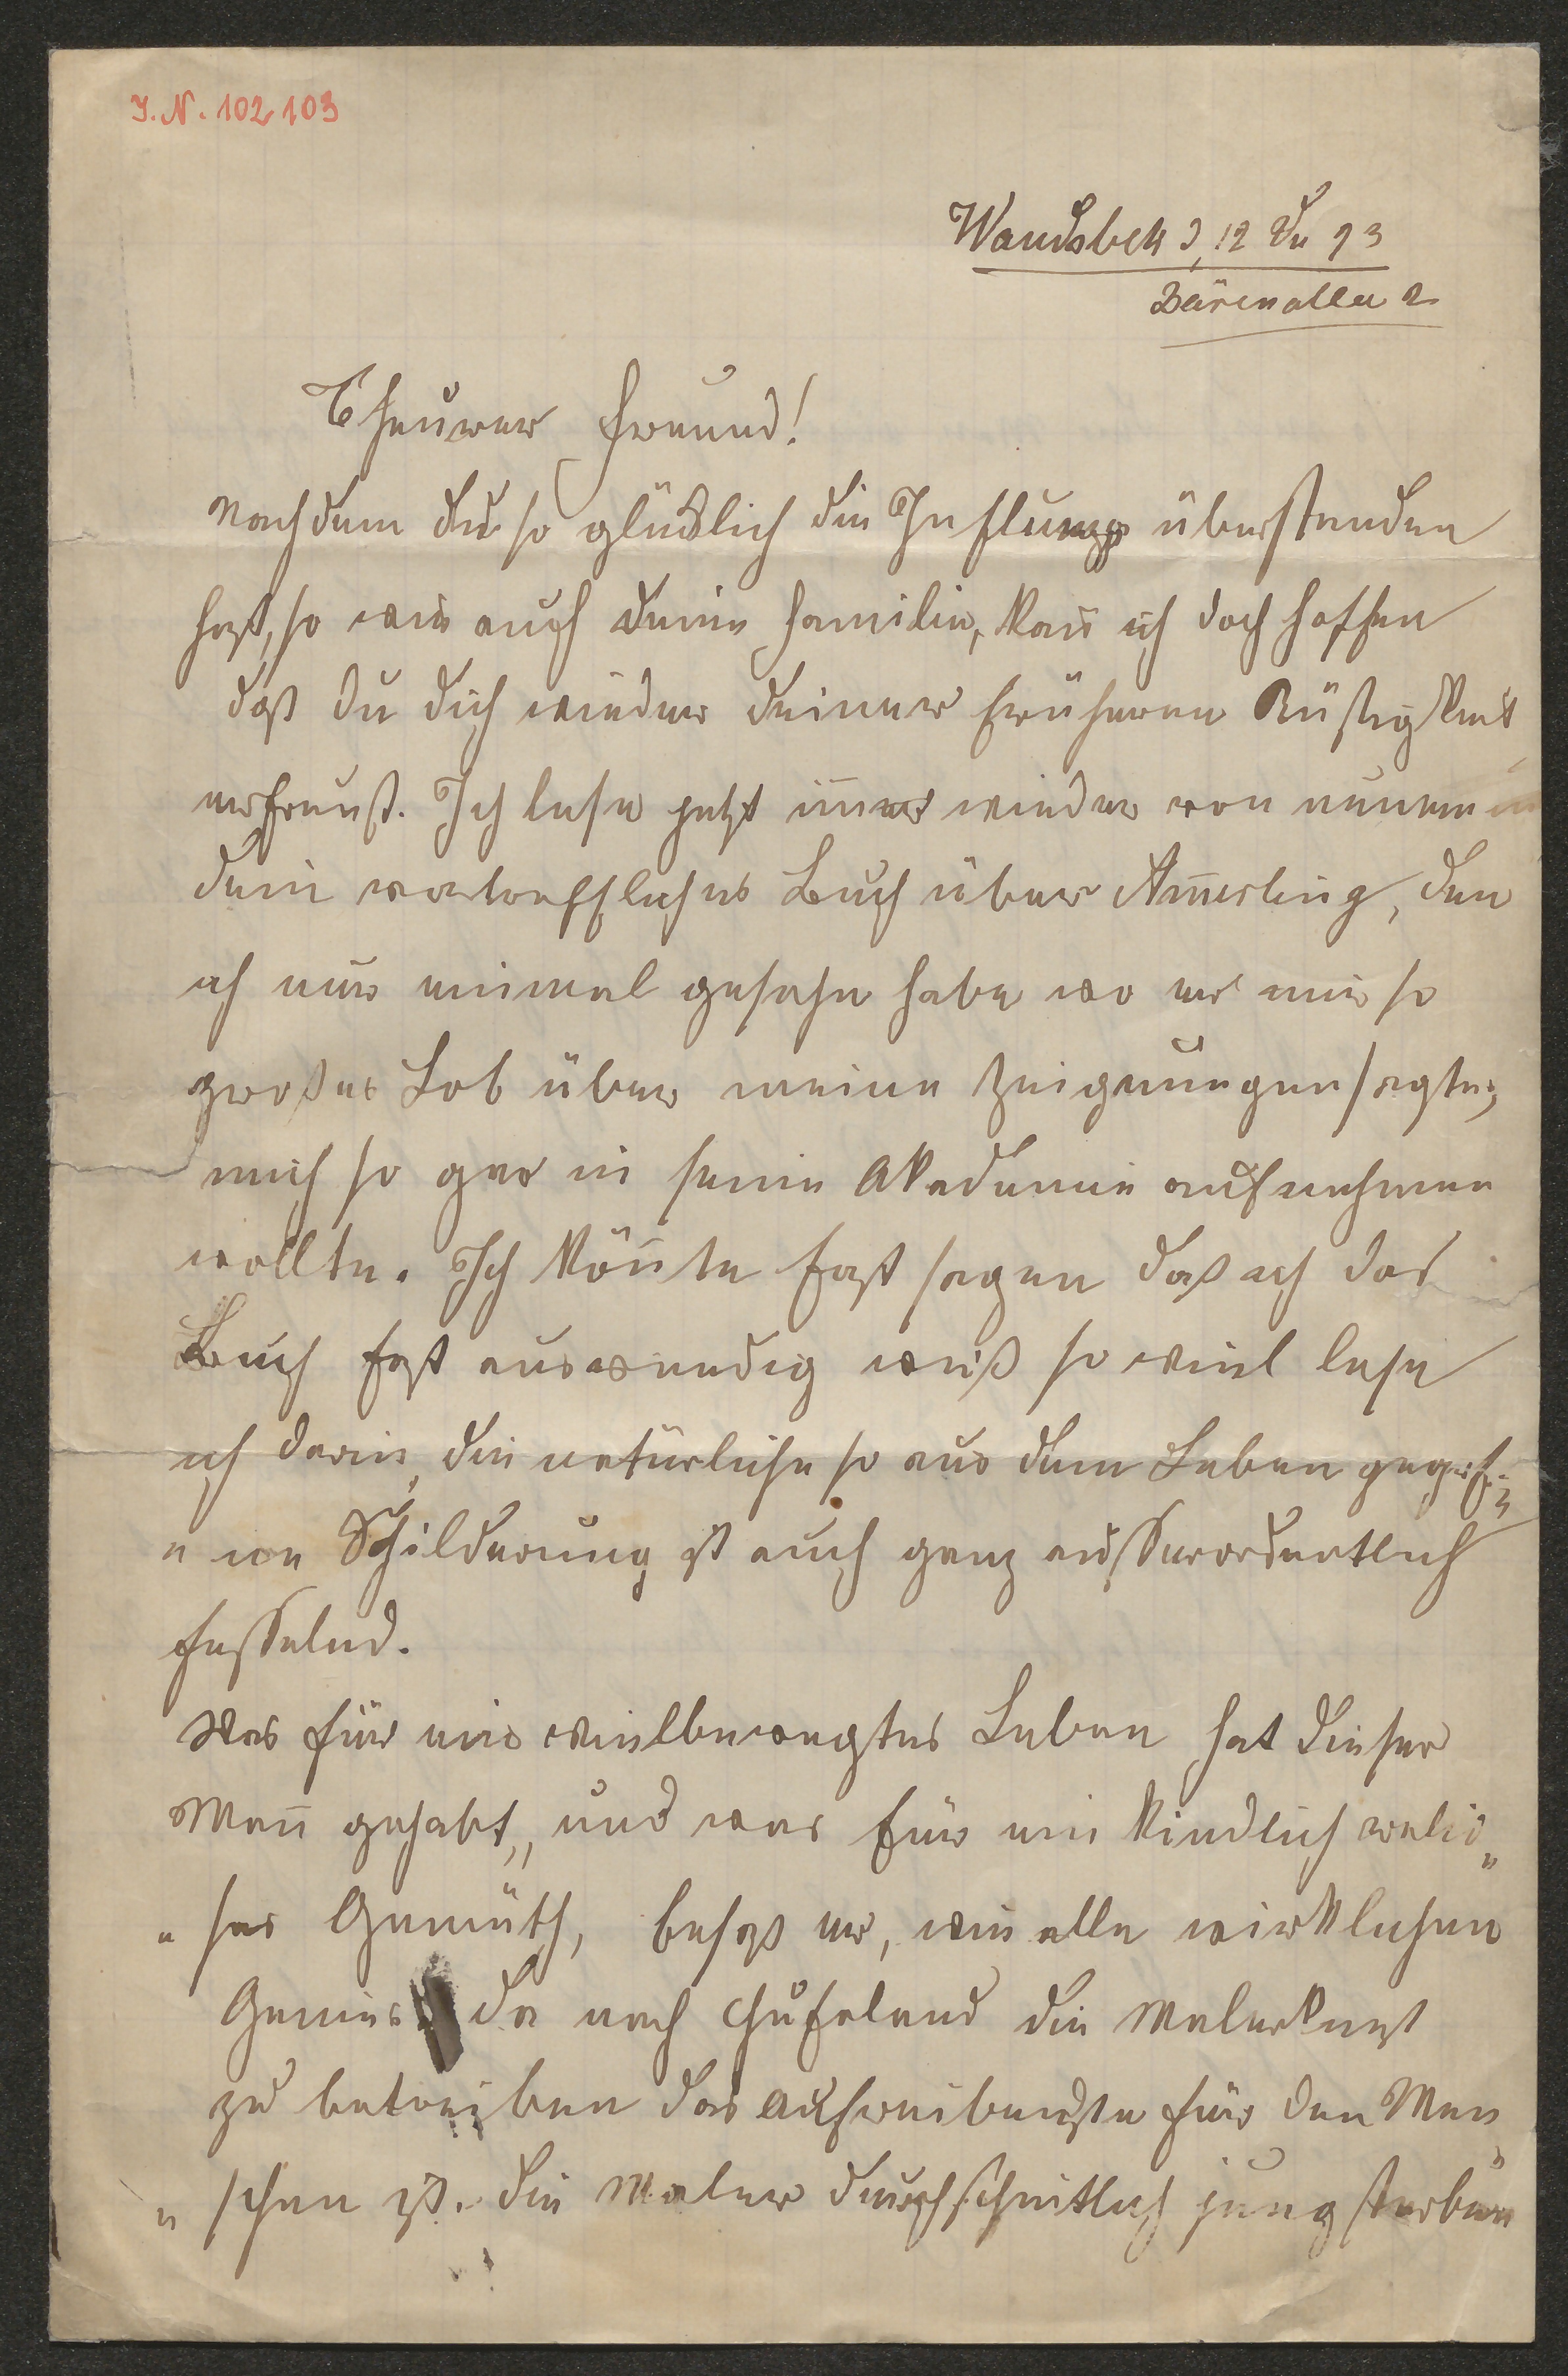 I. N. 102103
Wandsbek d, 12 De 93
Bärenallee 2
Theurer Freund!
Nachdem du so glücklich die Influenza überstanden
hast, so wie auch deine Familie, kan̄ ich doch hoffen
daß du dich wieder deiner früheren Rüstigkeit
erfreust. Ich lese jetzt im̄er wieder von neuem in
dein vortreffliches Buch über Am̄erling, den
ich nur einmal gesehe habe wo er mir so
großes Lob über meine Zeignungen sagte,
mich so gar in seine Akademie aufnehmen
wollte. Ich kön̄te fast sagen daß ich das
Buch fast auswendig weiß so viel lese
ich darin, die natürliche so aus dem Leben gegrif=
" ene Schilderung ist auch ganz ausserordentlich
fesselnd.
Was für ein vielbewegtes Leben hat dieser
Man̄ gehabt, und was für ein kindlich religiö"
" ses Gemüth, besaß er, wie alle wirklichen
Genies da nach Hufeland die Malerkunst
zu betreiben das aufreibendste für den Men
" schen ist. die Maler durchschnitlich jung sterben